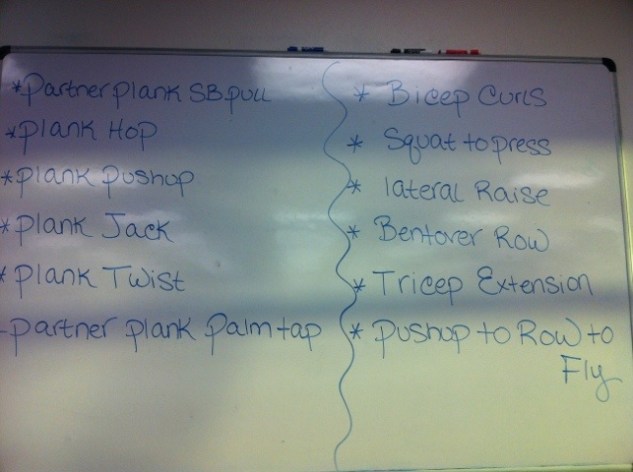 *Partner plank SB pull
*plank Hop
*plank pushup
*plank Jack
*plank Twist
-partner plank palm tap
* Bicep Curls
* Squat to press
* lateral Raise
* Bentover Row
* Tricep Extension
* Pushup to Row to
Fly